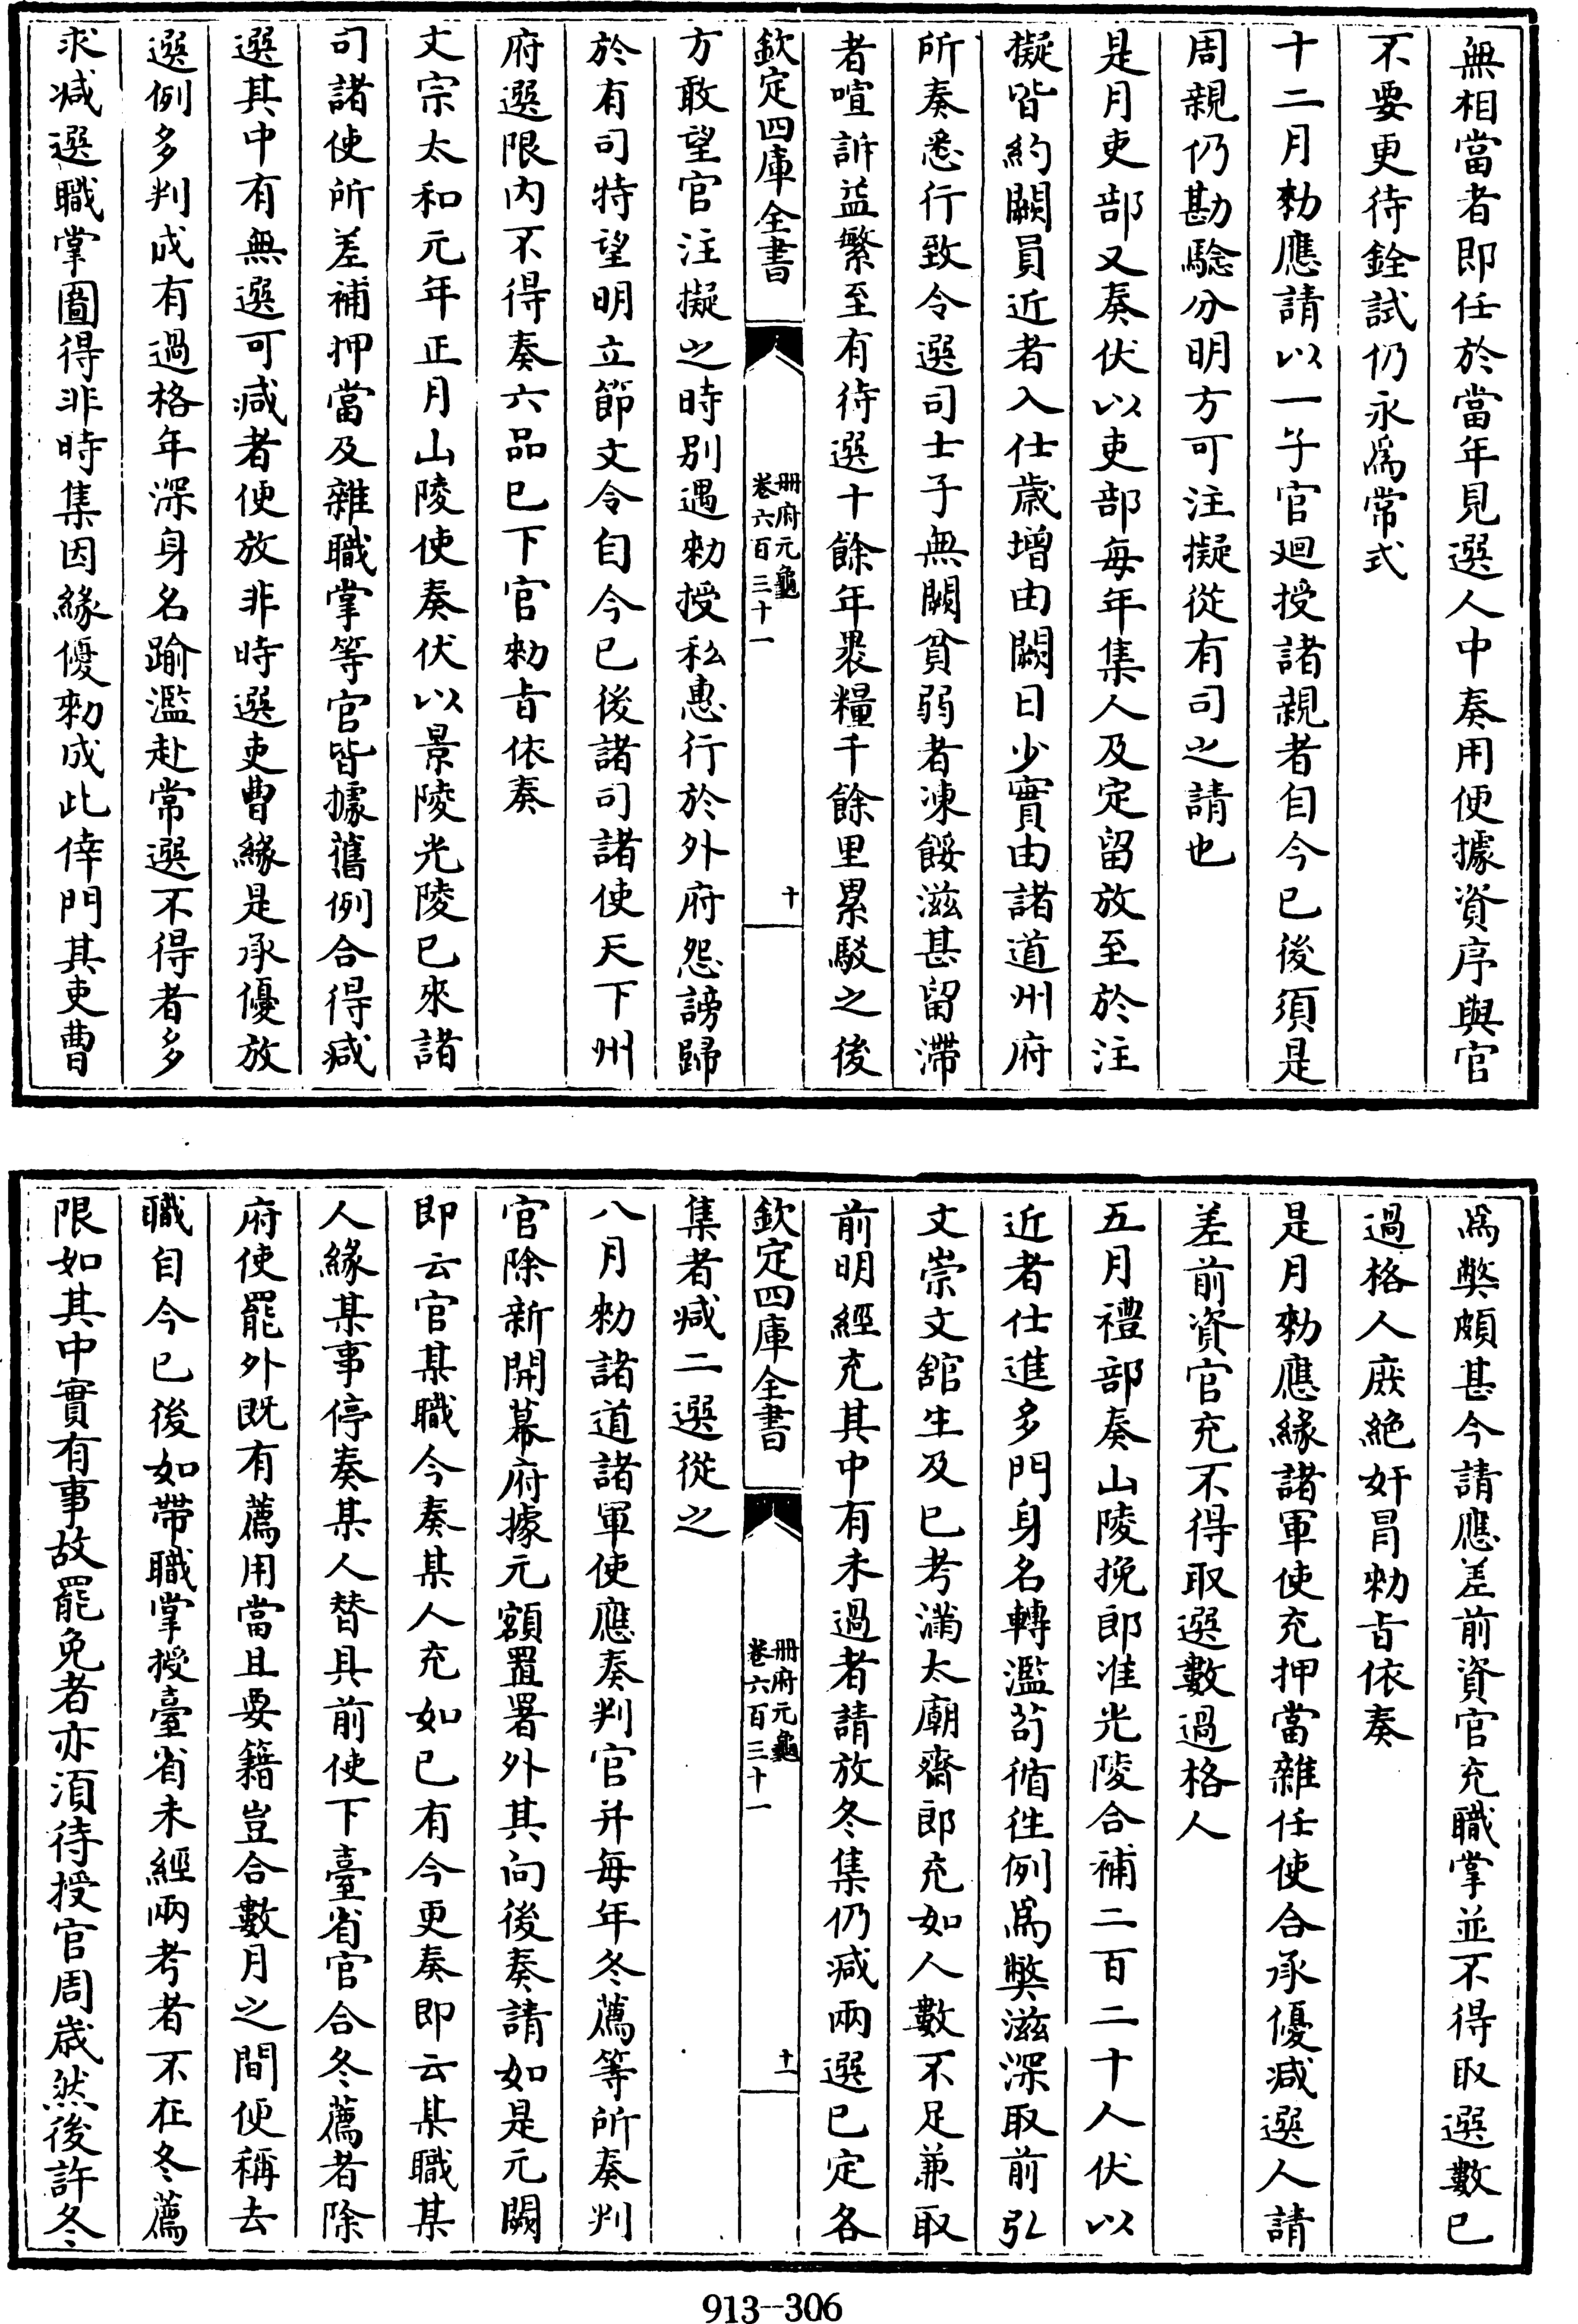 無相當者即任於當年見選人中奏用便據資序與官
不要更待銓試仍永爲常式
十二月勑應請以一子官廻授諸親者自今已後須是
周親仍勘騐分明方可注擬從有司之請也
是月吏部又奏伏以吏部每年集人及定留放至於注
擬皆約闕員近者入仕歲增由闕日少實由諸道州府
所奏悉行致令選司士子無闕貧弱者凍餒滋甚留滯
者喧訴益繁至有待選十餘年褁糧千餘里累駮之後
欽定四庫全書
册府元龜
卷六百三十一
十
方敢望官注擬之時别遇勑授私惠行於外府怨謗歸
於有司特望明立節文令自今已後諸司諸使天下州
府選限内不得奏六品已下官勑旨依奏
文宗太和元年正月山陵使奏伏以景陵光陵已來諸
司諸使所差補押當及雜職掌等官皆據舊例合得减
選其中有無選可减者便放非時選吏曹緣是承優放
選例多判成有過格年深身名踰濫赴常選不得者多
求减選職掌圖得非時集因緣優勑成此倖門其吏曹
爲弊頗甚今請應差前資官充職掌並不得取選數已
過格人庶絶奸冒勑旨依奏
是月勑應緣諸軍使充押當雜任使合承優减選人請
差前資官充不得取選數過格人
五月禮部奏山陵挽郎准光陵合補二百二十人伏以
近者仕進多門身名轉濫茍循徃例爲弊滋深取前引
文崇文舘生及已考滿太廟齋郎充如人數不足兼取
前明經充其中有未過者請放冬集仍减兩選已定各
欽定四庫全書
册府元龜
卷六百三十一
十一
集者减二選從之
八月勑諸道諸軍使應奏判官并每年冬薦等所奏判
官除新開幕府據元額置署外其向後奏請如是元闕
即云官某職今奏某人充如已有今更奏即云某職某
人緣某事停奏某人替具前使下臺省官合冬薦者除
府使罷外既有薦用當且要籍豈合數月之間便稱去
職自今已後如帶職掌授臺省未經兩考者不在冬薦
限如其中實有事故罷免者亦須待授官周歲然後許冬
913—306